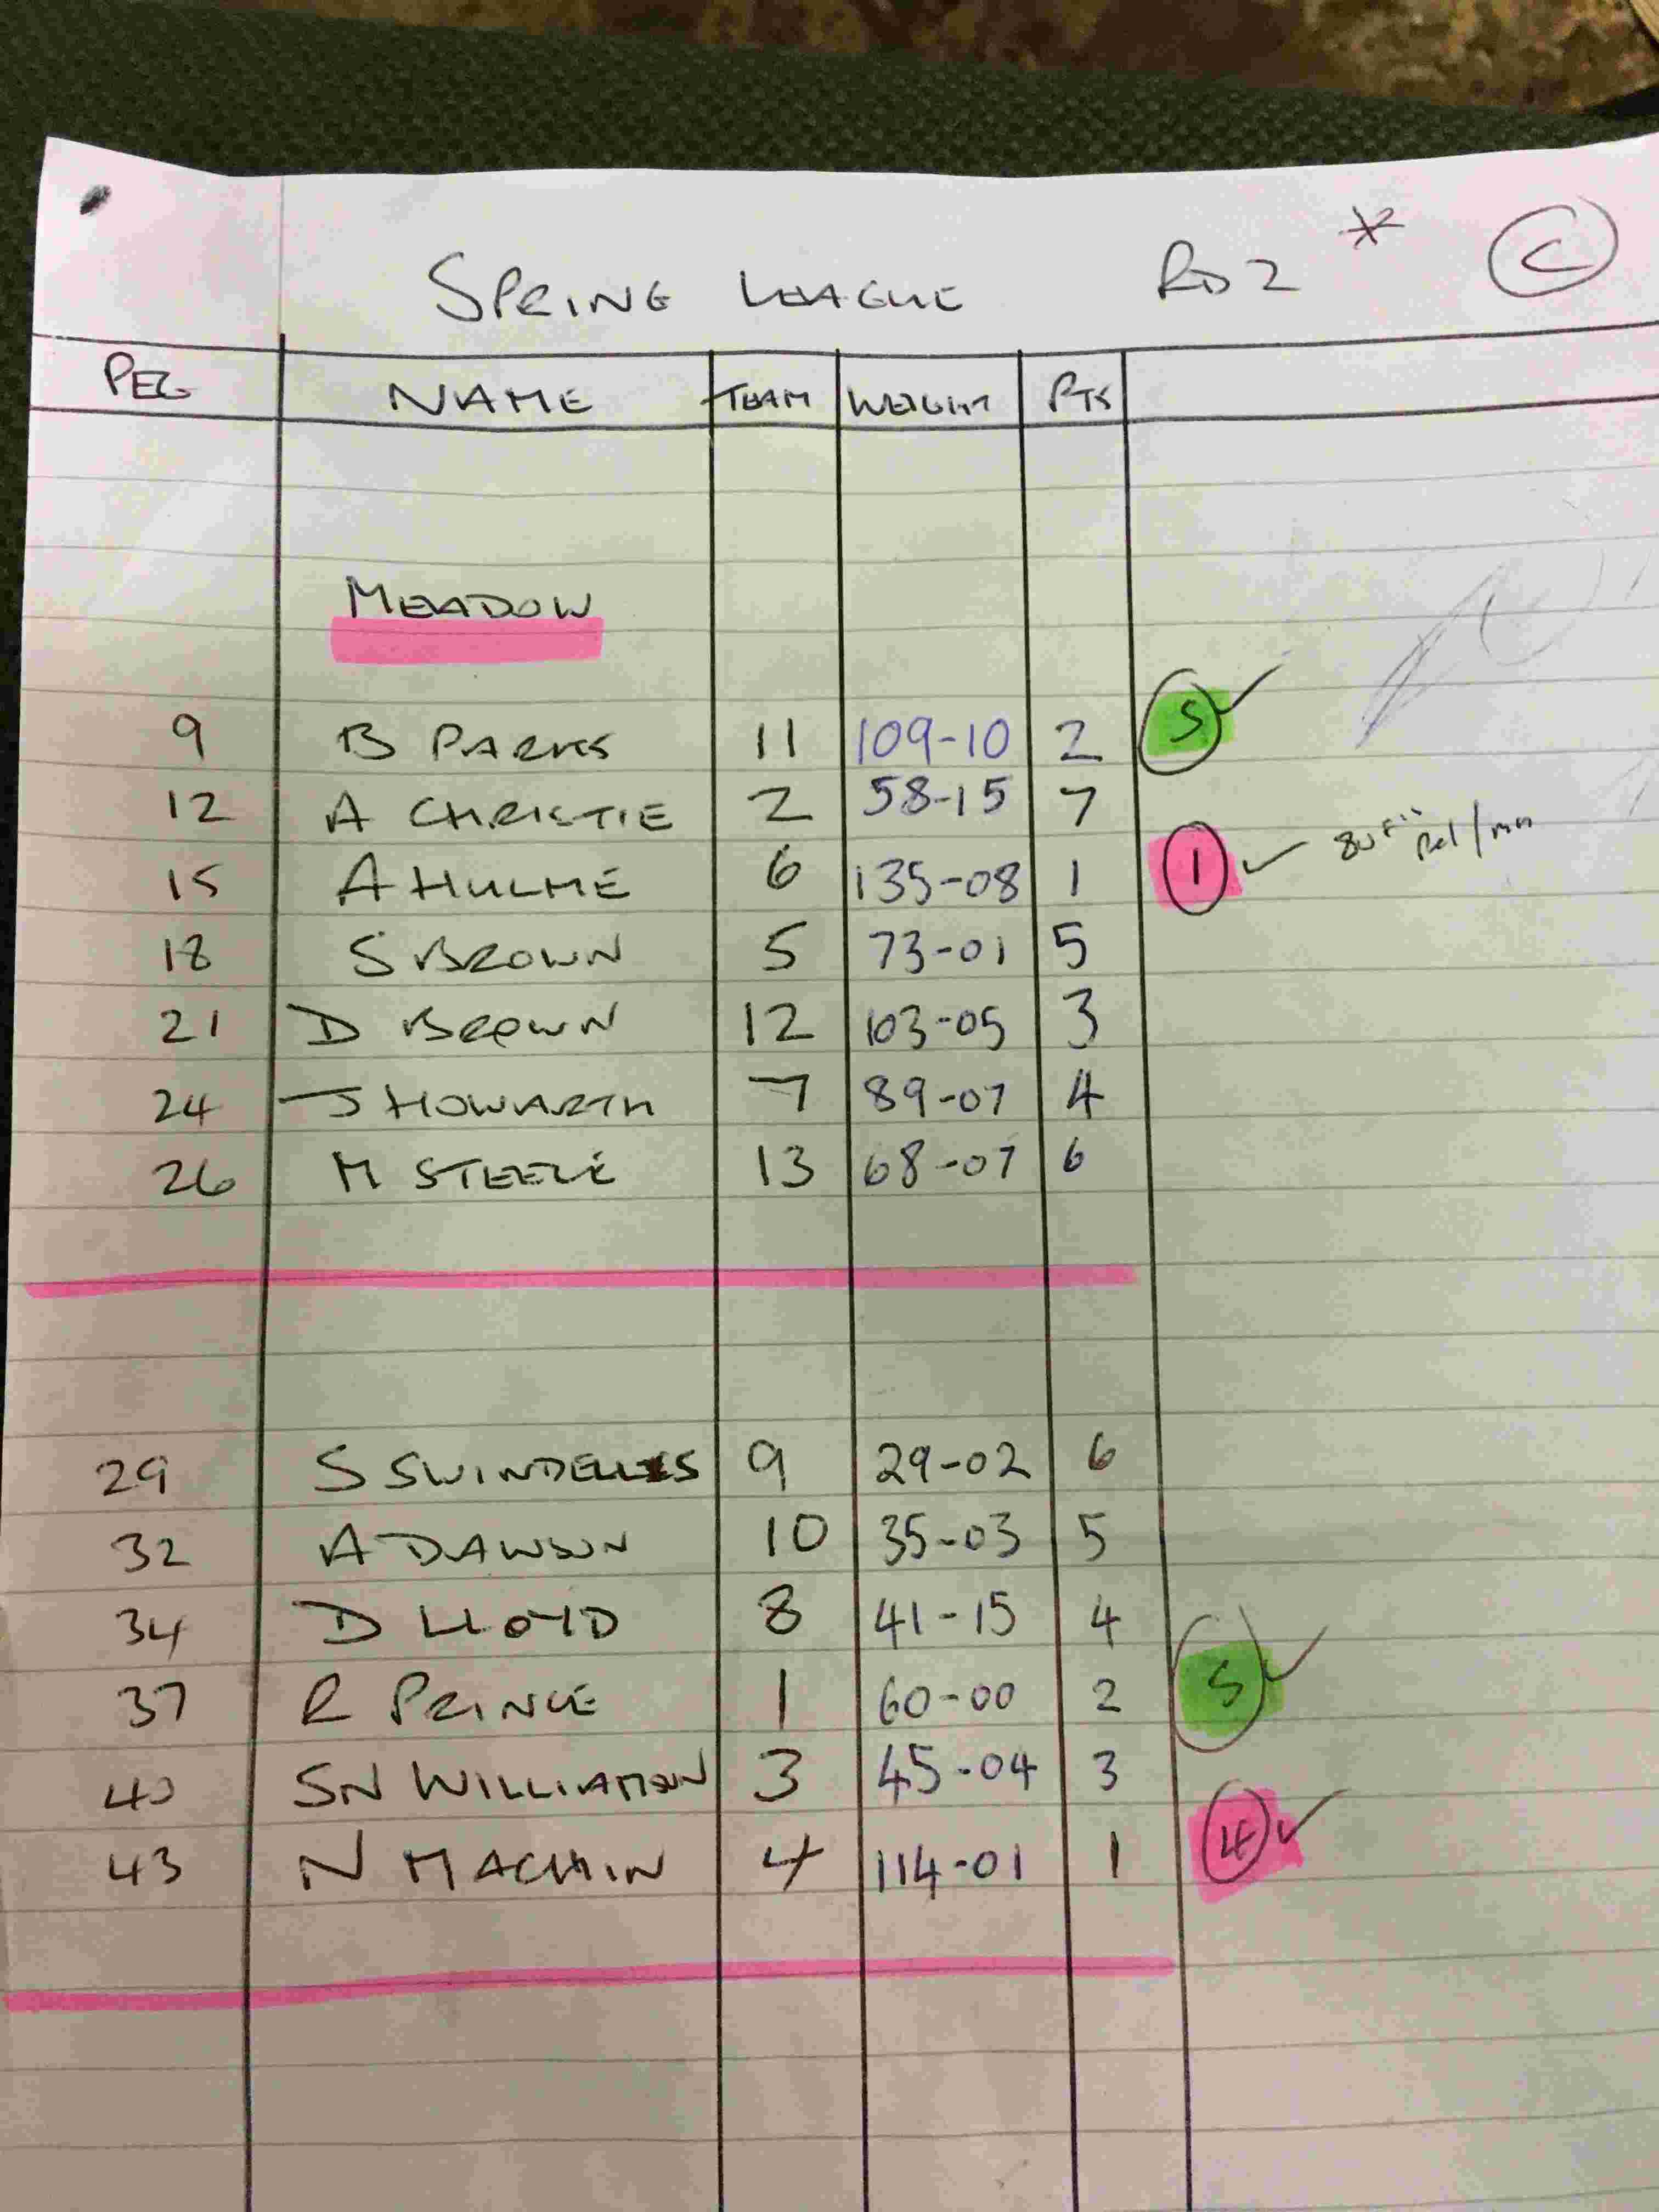 SPRING LEAGUE RD 2 * C
PEG NAME TEAM WEIGHT PTS
MEADOW
9 B PARKS 11 109-10 2 S
12 A CHRISTIE 2 58-15 7
15 A HULME 6 135-08 1 1
18 S BROWN 5 73-01 5
21 D BROWN 12 103-05 3
24 J HOWARTH 7 89-07 4
26 M STEELE 13 68-07 6
29 S SWINDELLS 9 29-02 6
32 A DAWSON 10 35-03 5
34 D LLOYD 8 41-15 4
37 R PRINCE 1 60-00 2 S
40 SN WILLIAMSON 3 45-04 3
43 N MACHIN 4 114-01 1 4